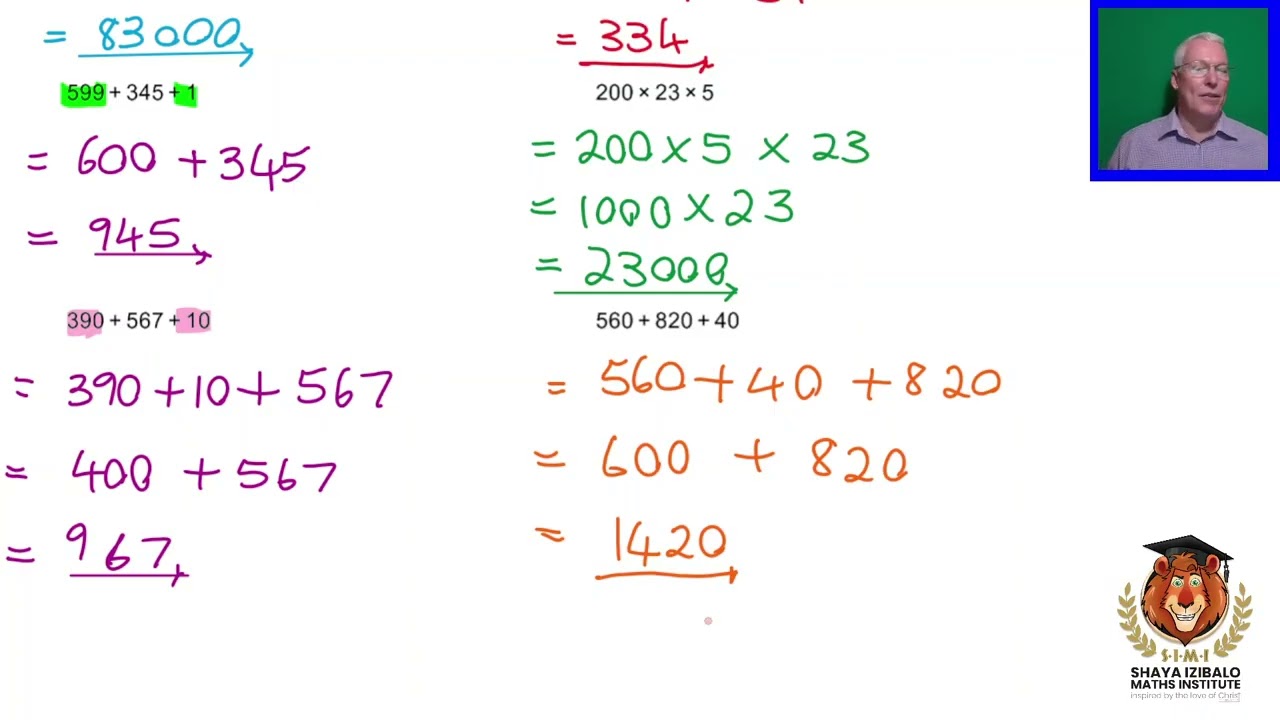 = 83000
599 + 345 + 1
= 600 + 345
= 945
390 + 567 + 10
= 390 + 10 + 567
= 400 + 567
= 967
= 334
200 × 23 × 5
= 200 × 5 × 23
= 1000 × 23
= 23000
560 + 820 + 40
= 560 + 40 + 820
= 600 + 820
= 1420
S·I·M·I
SHAYA IZIBALO
MATHS INSTITUTE
inspired by the love of Christ